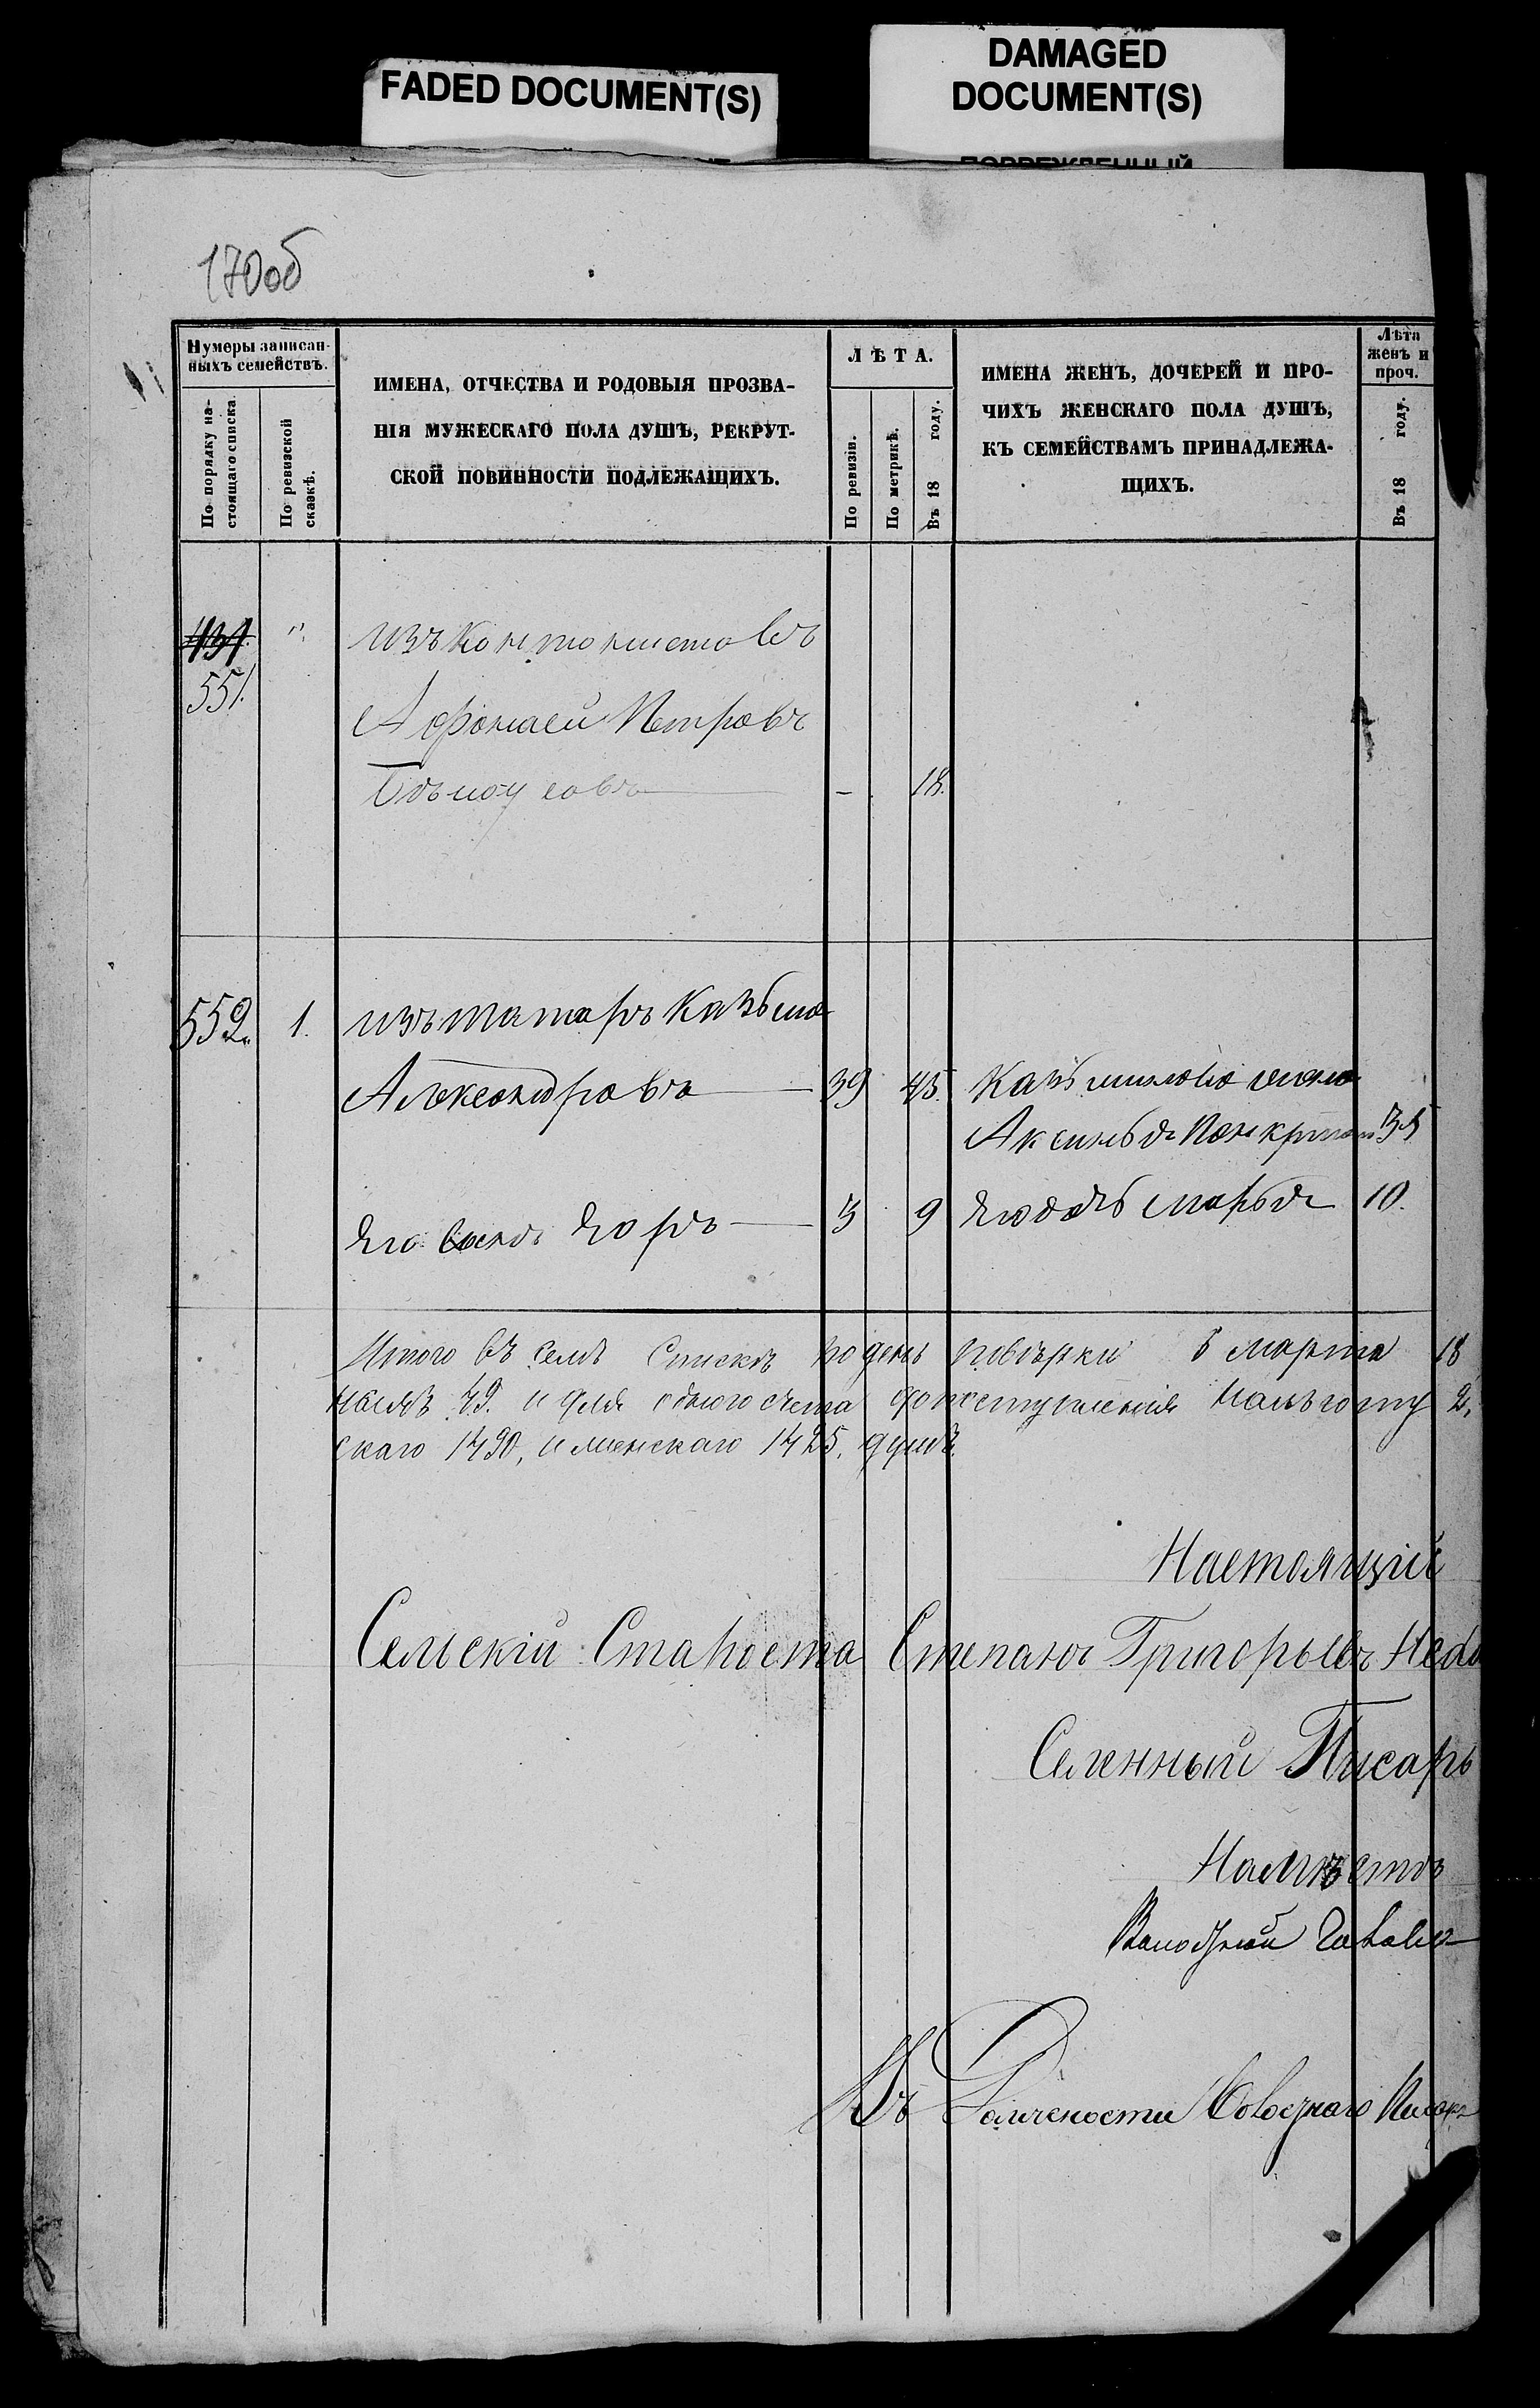 FADED DOCUMENT(S)
DAMAGED
DOCUMENT(S)
170об
Нумеры записан-
ныхъ семействъ.
По порядку на-
стоящаго списка.
По ревизской
сказкѣ.
ИМЕНА, ОТЧЕСТВА И РОДОВЫЯ ПРОЗВА-
НІЯ МУЖЕСКАГО ПОЛА ДУШЪ, РЕКРУТ-
СКОЙ ПОВИННОСТИ ПОДЛЕЖАЩИХЪ.
ЛѢТА.
По ревизіи.
По метрикѣ.
Въ 18 году.
ИМЕНА ЖЕНЪ, ДОЧЕРЕЙ И ПРО-
ЧИХЪ ЖЕНСКАГО ПОЛА ДУШЪ,
КЪ СЕМЕЙСТВАМЪ ПРИНАДЛЕЖА-
ЩИХЪ.
Лѣта
женъ и
проч.
Въ 18 году.
431 " изъ Кантонистовъ
551.
Афонасей Петровъ
Бѣлоусовъ — 18.
552. 1. изъ татаръ Казьма
Александровъ 39 45. Казьмы жена
Аксинья 35
Его сынъ Егоръ 3 9 Марья 10.
Итого въ семъ Спискѣ по день повѣрки 5 марта 18
49. и для одного счета 2.
скаго 1490, и женскаго 1425. душъ.
Настоящій
Сельскій Староста Степанъ Григорьевъ
Писарь
Голова
Въ Должности Писаря